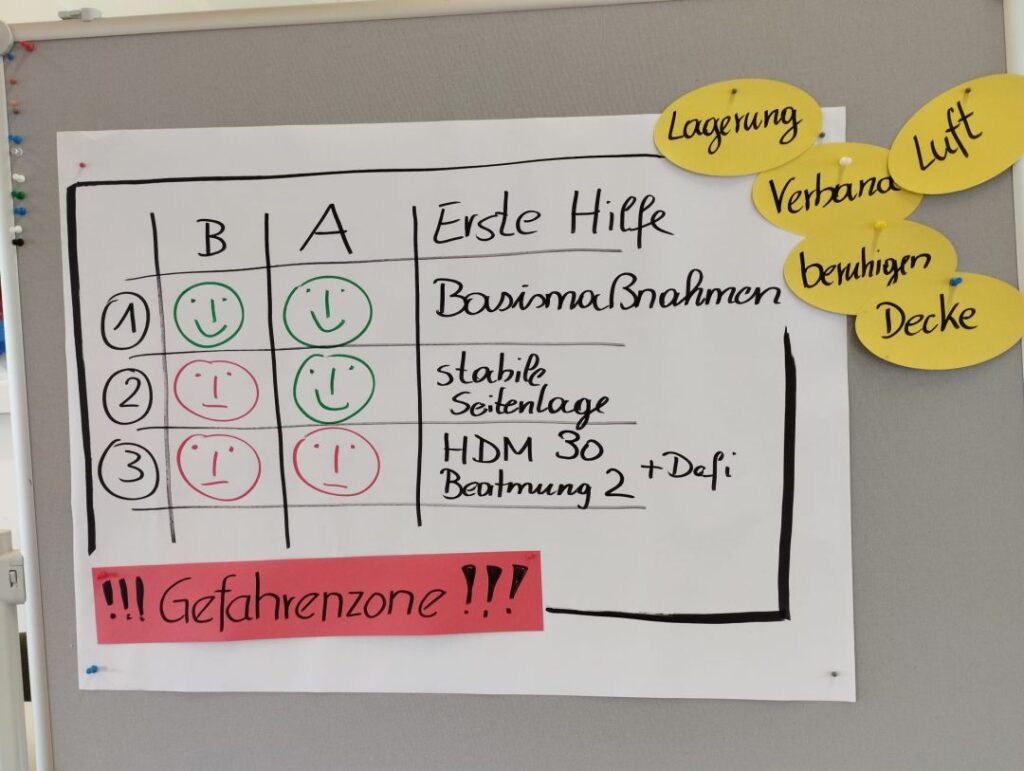 Lagerung
Luft
Verband
beruhigen
Decke
B A Erste Hilfe
1 Basismaßnahmen
2 stabile
Seitenlage
3 HDM 30
Beatmung 2 + Defi
!!! Gefahrenzone !!!